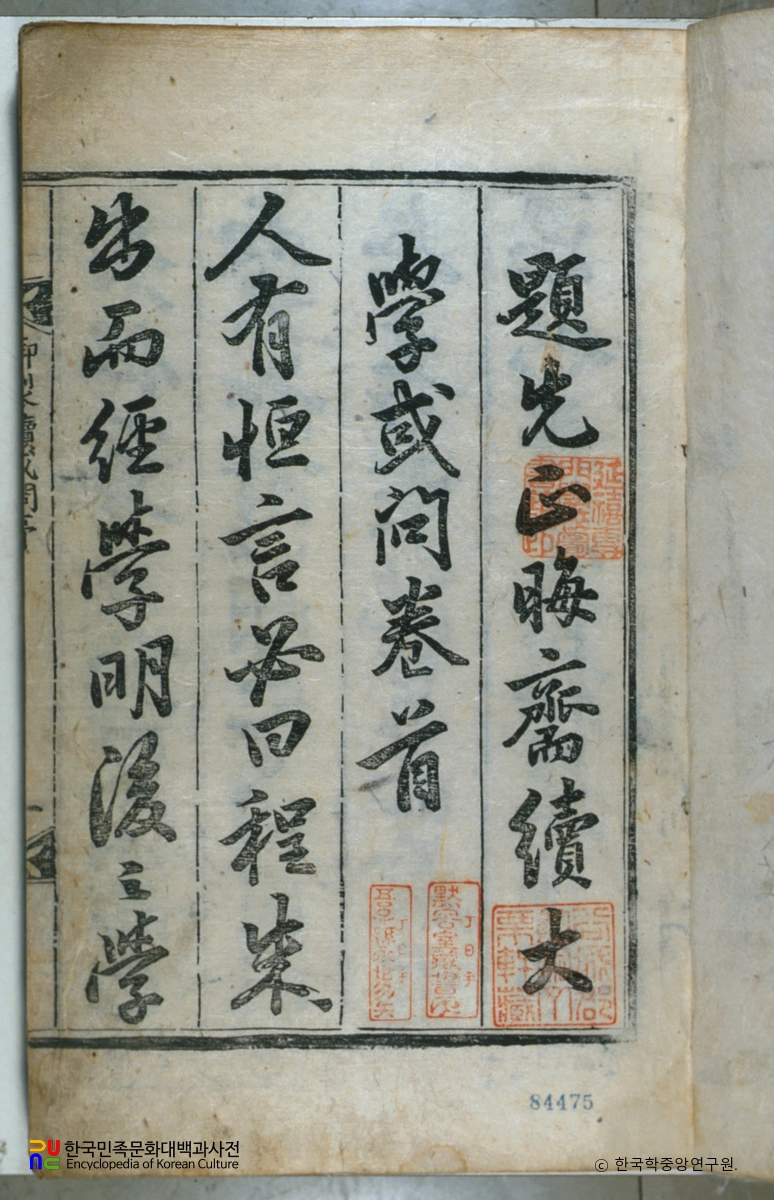 題先正晦齋續大
學或問卷首
人有恒言必曰程朱
出而經學明後之學
84475
한국민족문화대백과사전
Encyclopedia of Korean Culture
© 한국학중앙연구원.